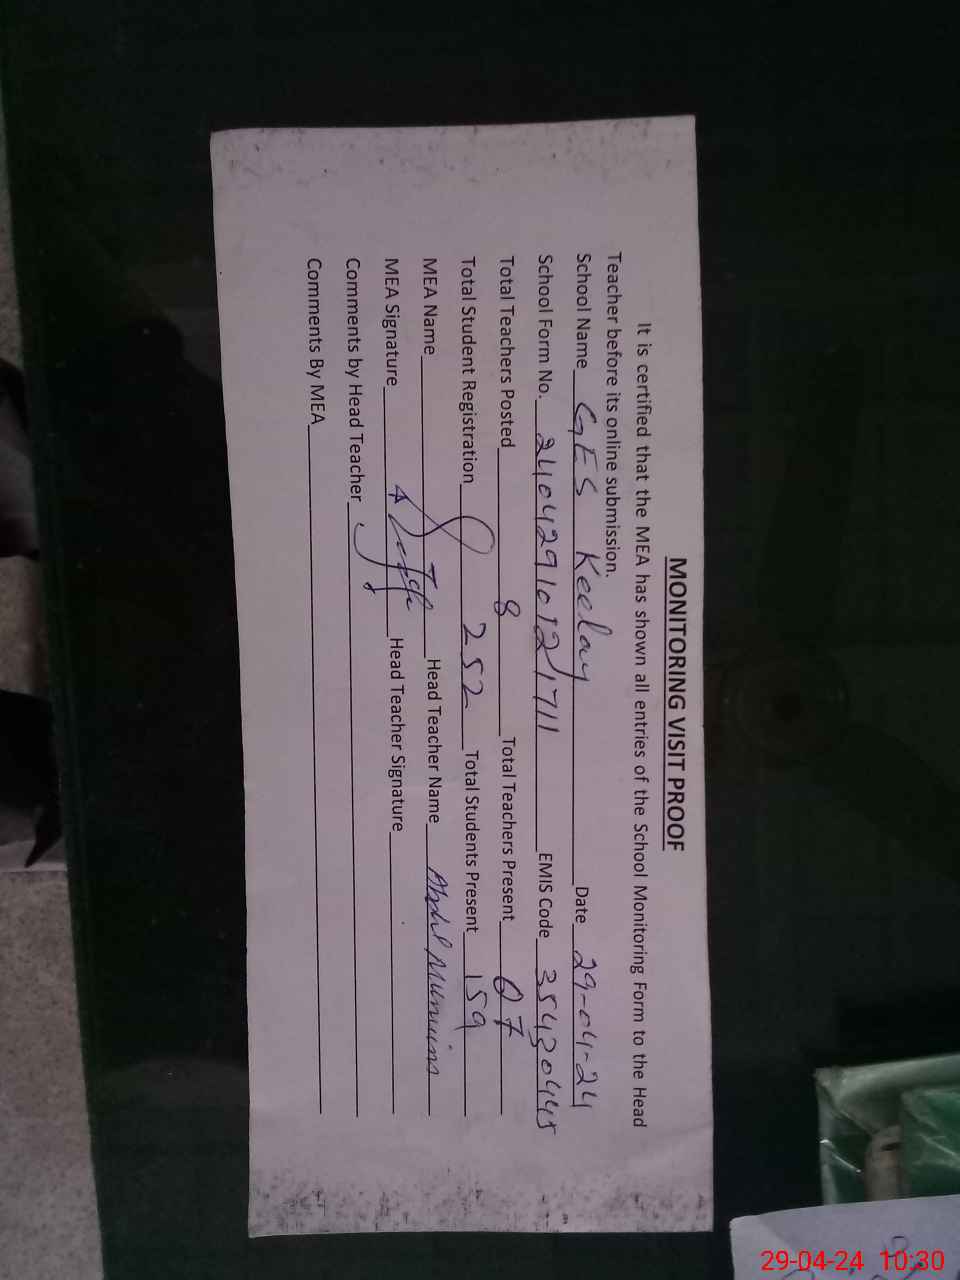 MONITORING VISIT PROOF
It is certified that the MEA has shown all entries of the School Monitoring Form to the Head
Teacher before its online submission.
School Name GES Keelay Date 29-04-24
School Form No. 24042910121711 EMIS Code 35430445
Total Teachers Posted 8 Total Teachers Present 07
Total Student Registration 252 Total Students Present 159
MEA Name Head Teacher Name Abdul Mumin
MEA Signature Head Teacher Signature
Comments by Head Teacher
Comments By MEA
29-04-24 10:30